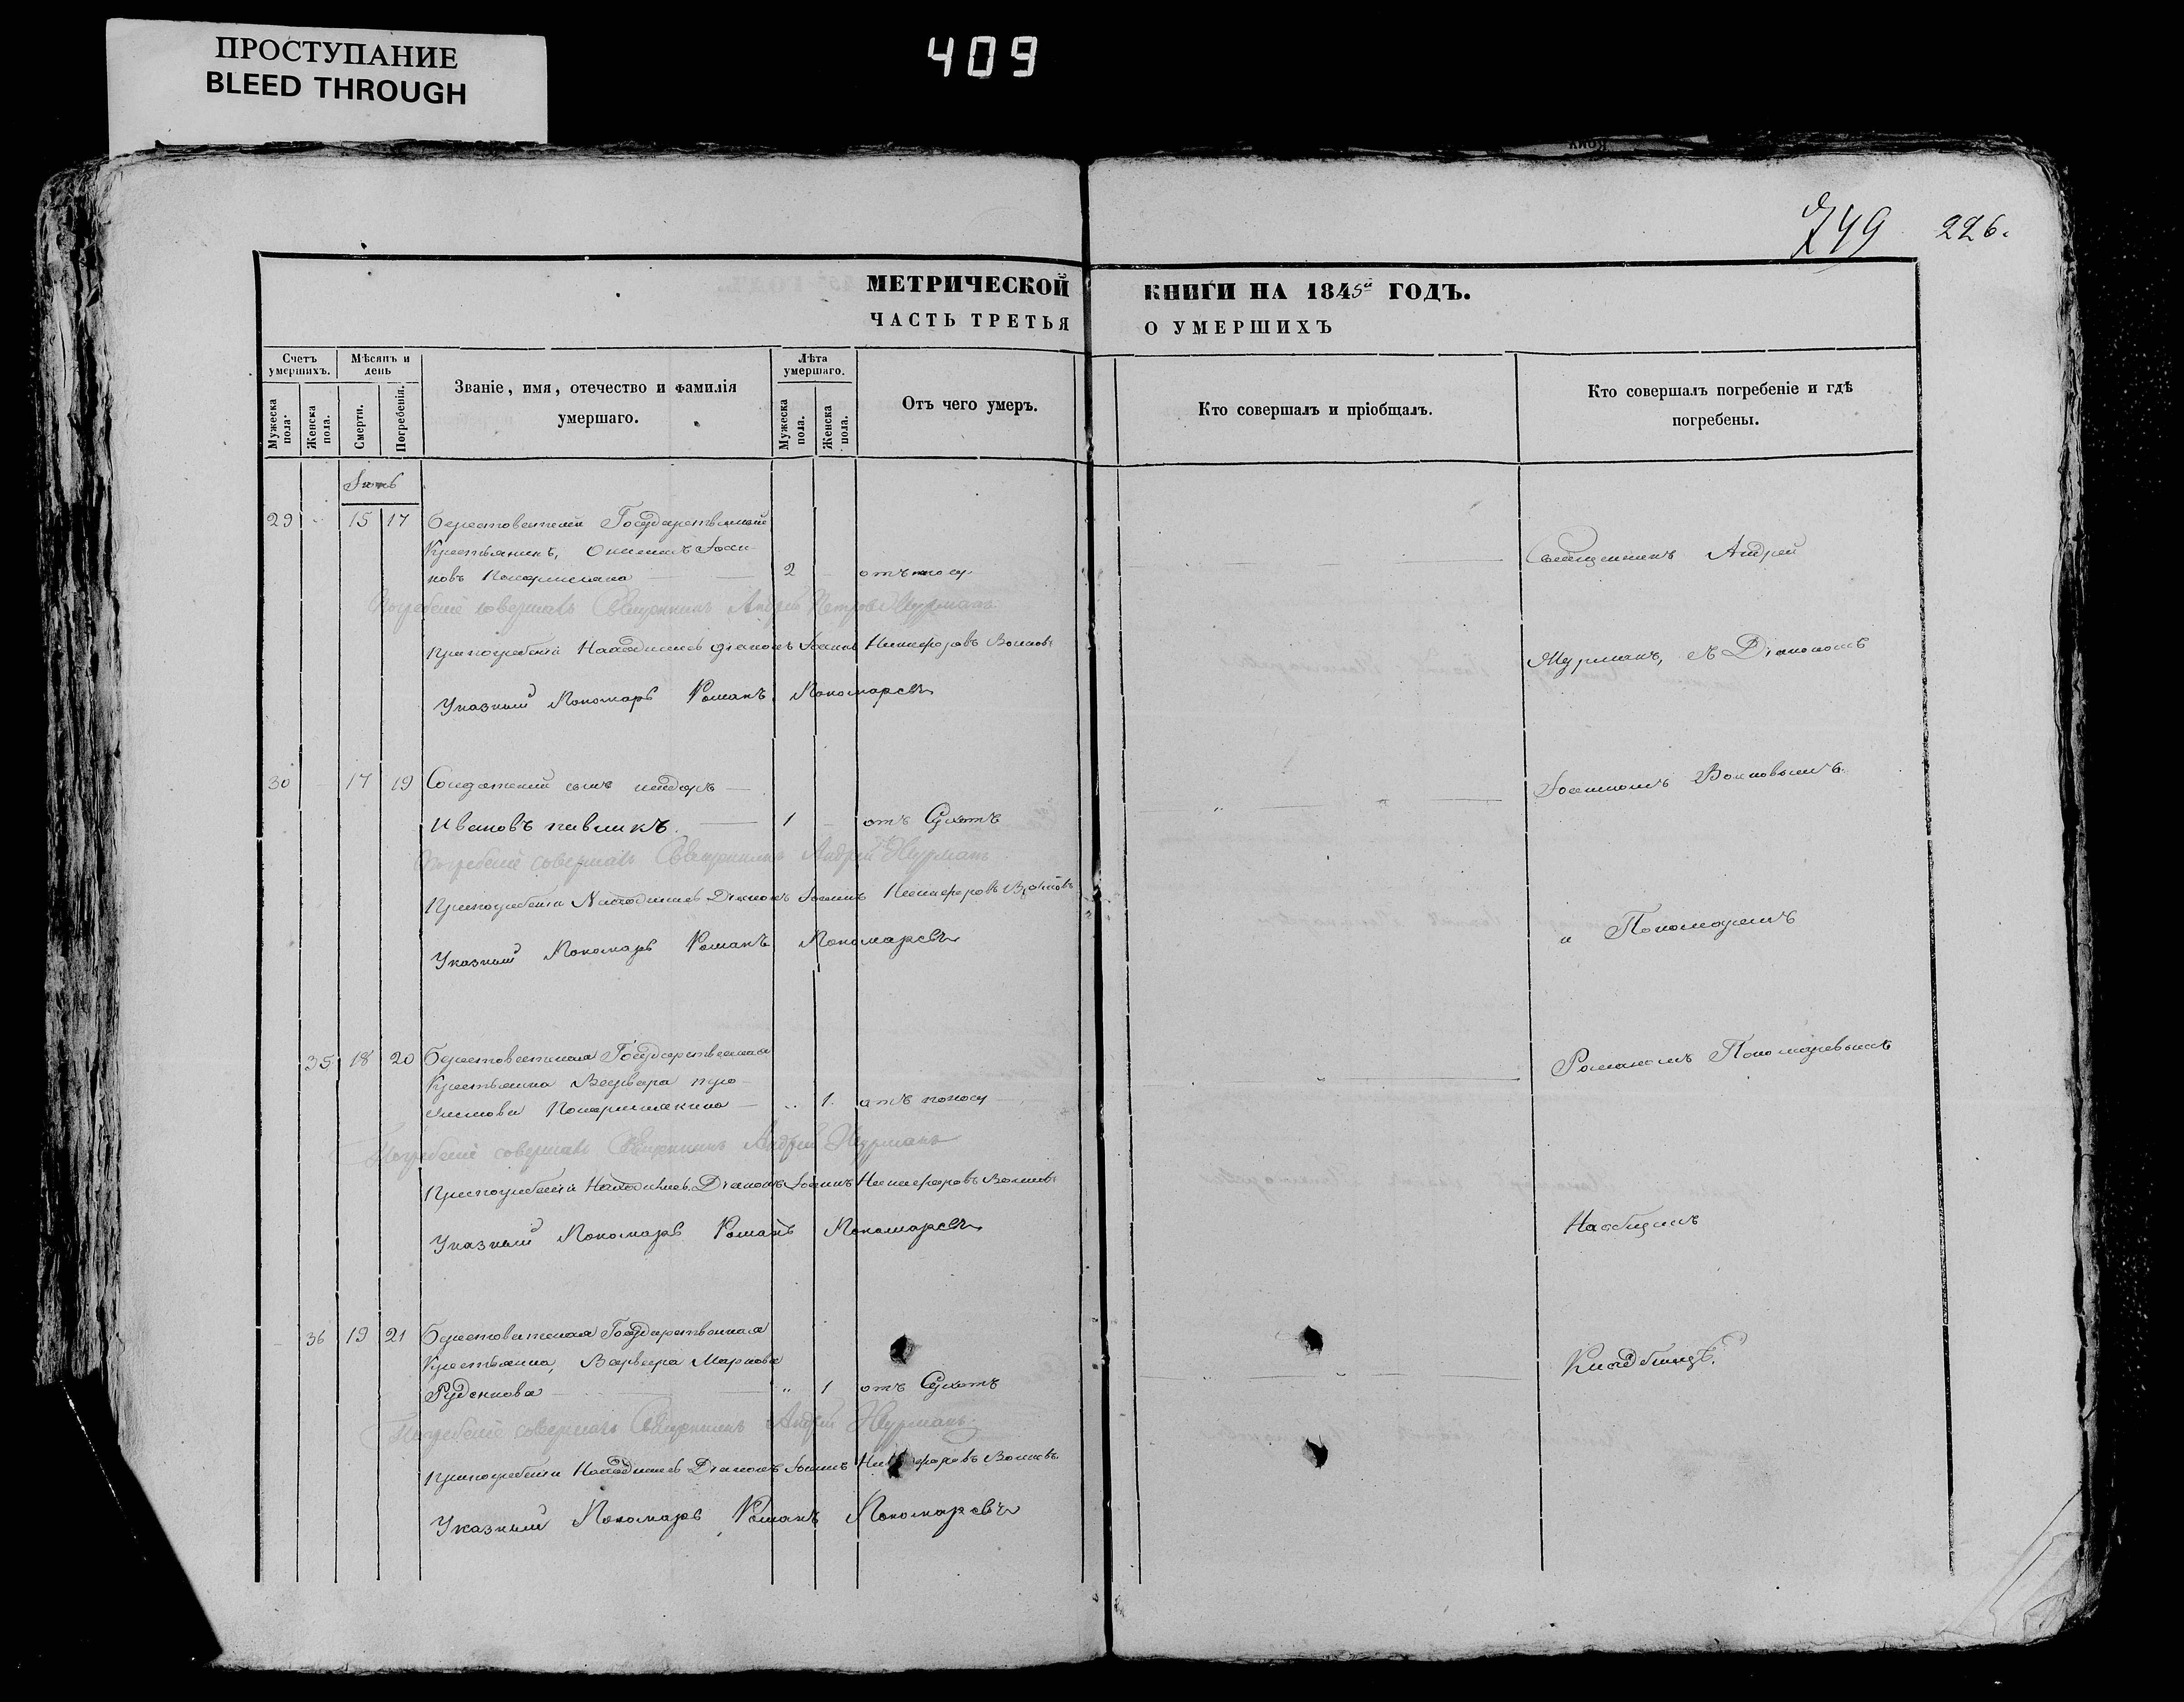 ПРОСТУПАНИЕ
BLEED THROUGH
409
749 226.
МЕТРИЧЕСКОЙ КНИГИ НА 1845й ГОДЪ.
ЧАСТЬ ТРЕТЬЯ О УМЕРШИХЪ
Счетъ умершихъ.
Мѣсяцъ и день
Званіе, имя, отечество и фамилія умершаго.
Лѣта умершаго.
Отъ чего умеръ.
Кто совершалъ и пріобщалъ.
Кто совершалъ погребеніе и гдѣ погребены.
Мужеска пола.
Женска пола.
Смерти.
Погребенія.
Мужеска пола.
Женска пола.
Іюнь
29 15 17 Берестовенькій Государственный
Крестьянинъ,
2
Священникъ Андрей
Погребеніе совершалъ Священникъ Андрей Петровъ Журманъ
При погребеніи Находились діаконъ Іоаннъ Никифоровъ Волковъ
Журманъ, съ Діакономъ
Указный Пономарь Романъ Пономаревъ
30 17 19 Солдатскій сынъ
Ивановъ 1 отъ Сухотъ
Іоанномъ Волковымъ
Погребеніе совершалъ Священникъ Андрей Журманъ
При погребеніи Находились Діаконъ Іоаннъ Никифоровъ Волковъ
и Пономаремъ
Указный Пономарь Романъ Пономаревъ
35 18 20 Берестовенькая Государственная
Крестьянка Варвара
1. отъ поносу
Романомъ Пономаревымъ
Погребеніе совершалъ Священникъ Андрей Журманъ
При погребеніи Находились Діаконъ Іоаннъ Никифоровъ Волковъ
Указный Пономарь Романъ Пономаревъ
На общемъ
36 19 21 Берестовенькая Государственная
Крестьянка, Варвара Маркова
Руденкова " 1 отъ Сухотъ
Кладбищѣ.
Погребеніе совершалъ Священникъ Андрей Журманъ.
При погребеніи Находились Діаконъ Іоаннъ Никифоровъ Волковъ
Указный Пономарь Романъ Пономаревъ